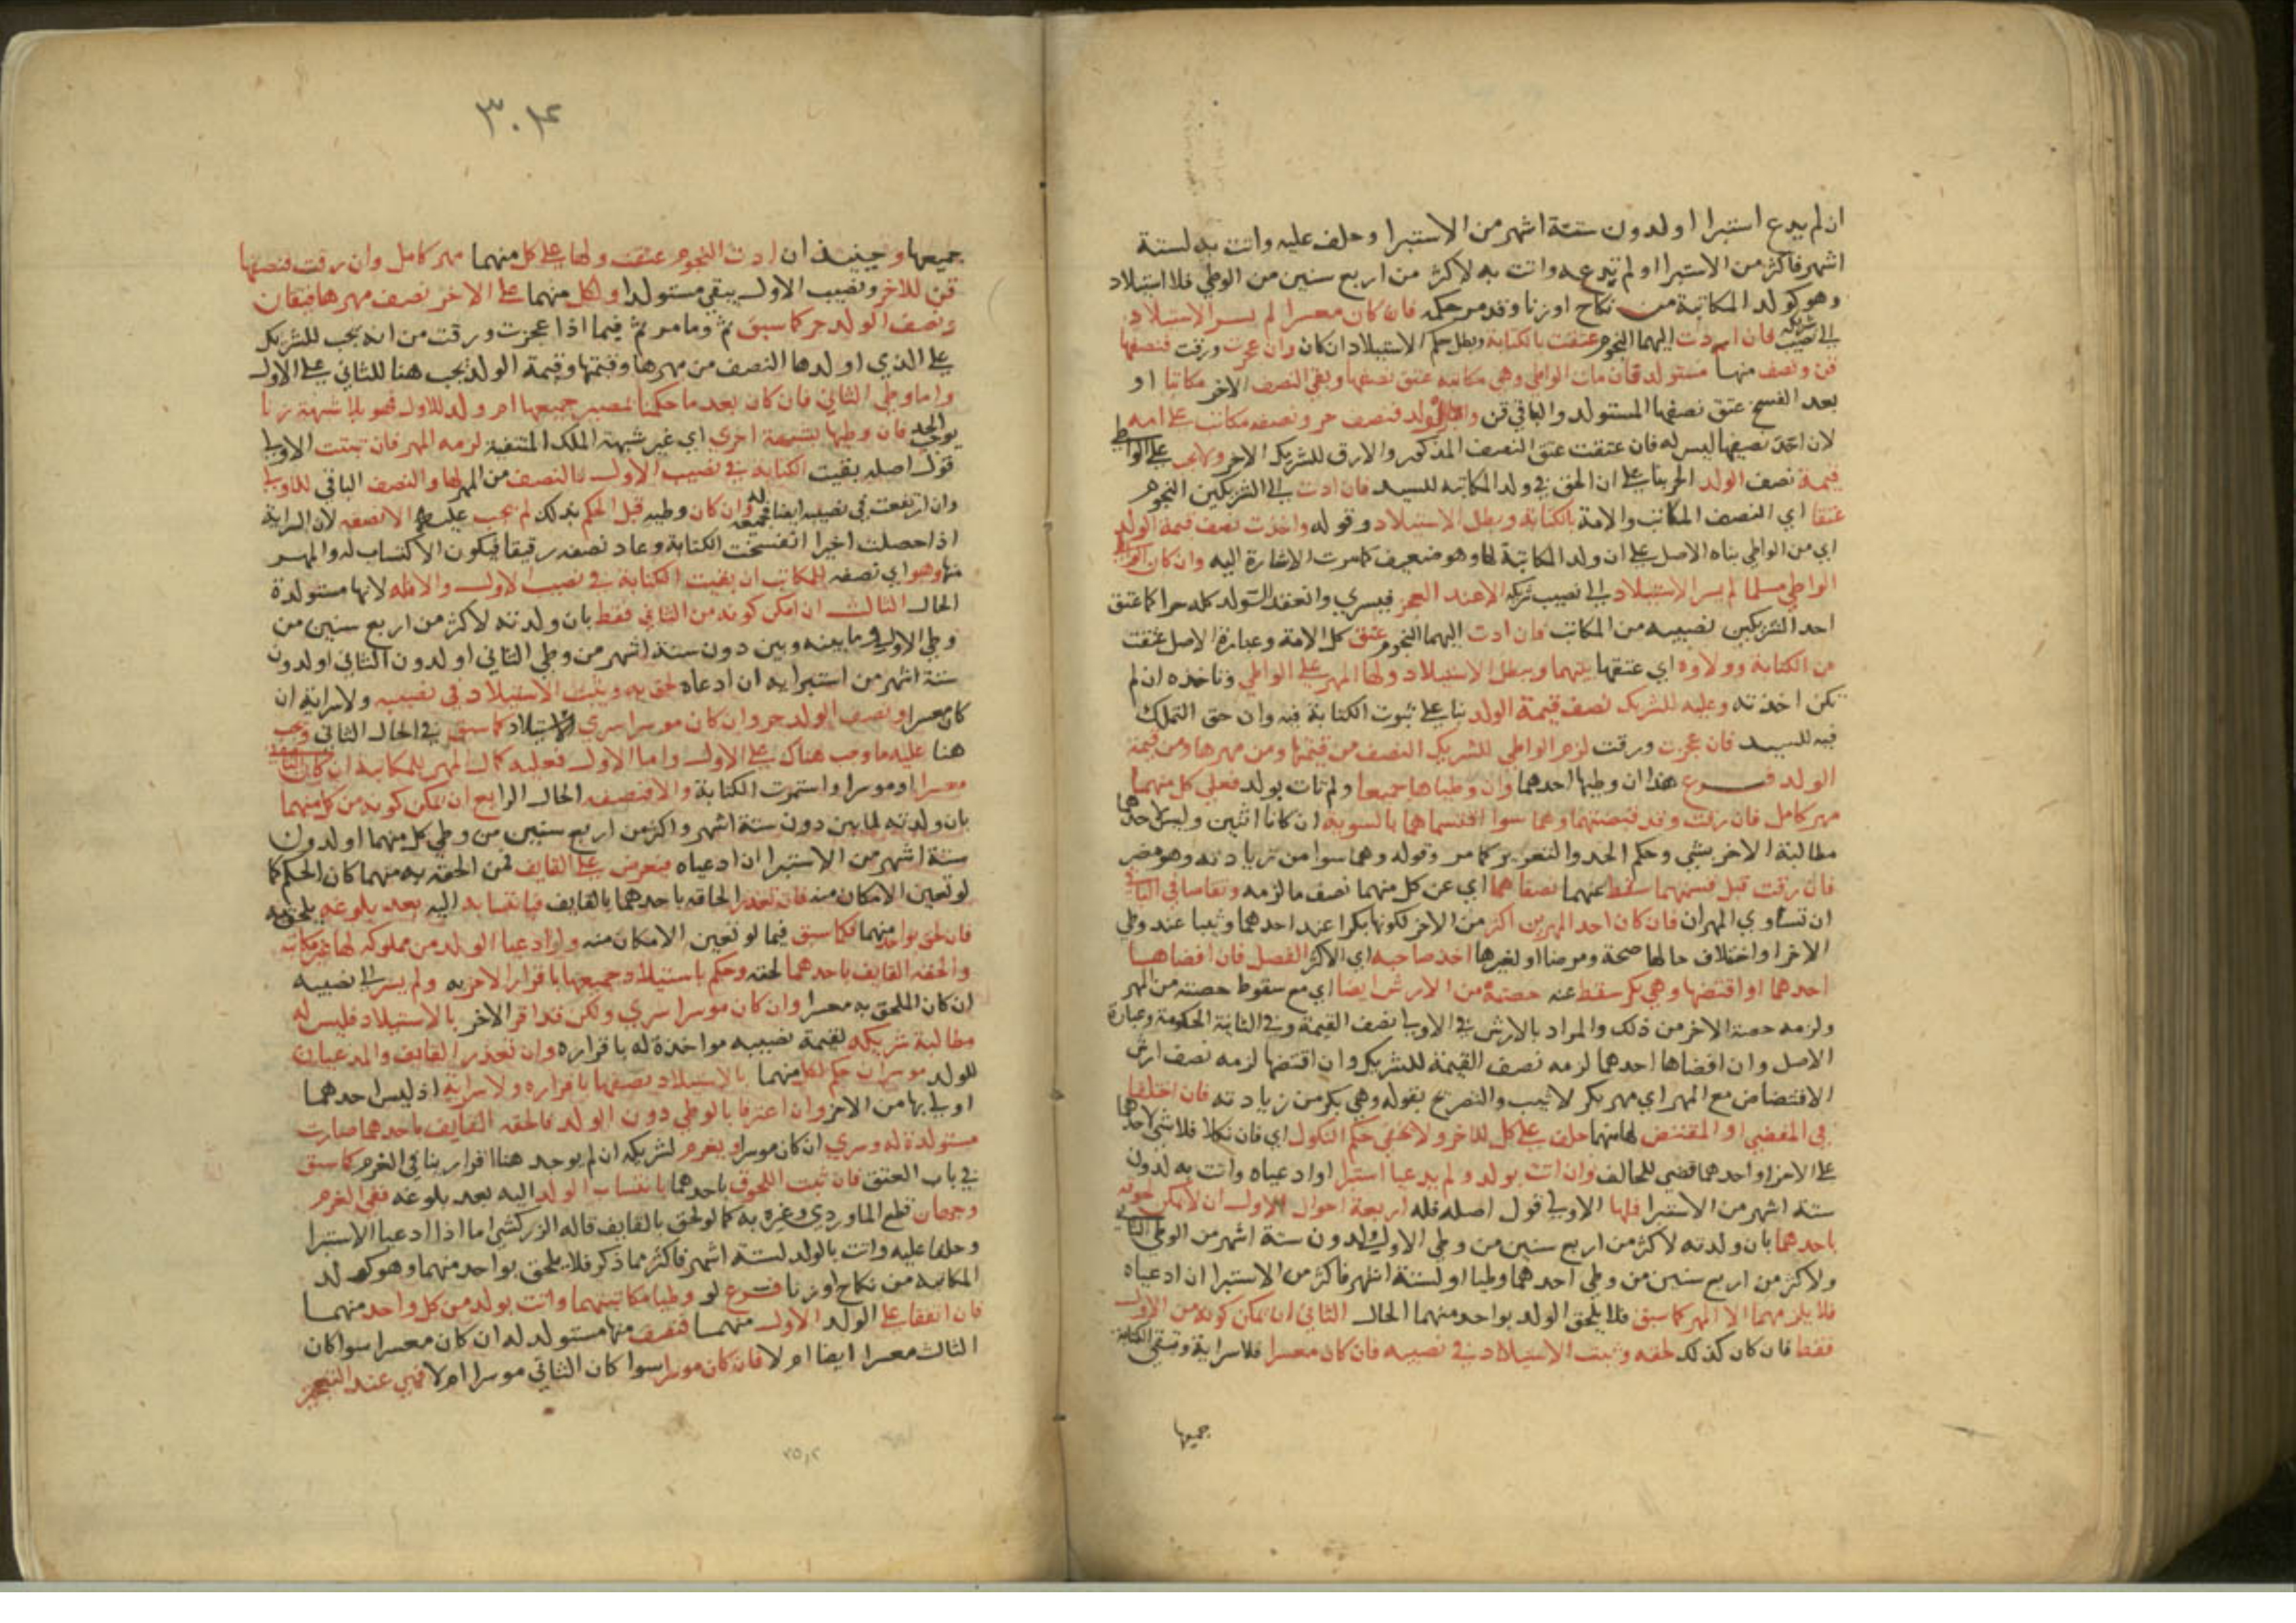 ان لم يدع استبرا او لدون ستة اشهر من الاستبرا وحلف عليه واتت به لستة
اشهر فاكثر من الاستبرا او لم تدعه واتت به لاكثر من اربع سنين من الوطي فلا استيلاد
وهو كولد المكاتبة من نكاح او زنا وقد مر حكمه فان كان معسرا لم يسر الاستيلاد
الى نصيب شريكه فان ادت اليهما النجوم عتقت بالكتابة وبطل حكم الاستيلاد ان كان وان عجزت ورقت فنصفها
قن ونصف منها مستولد فان مات الواطي وهي مكاتبه عتق نصفها وبقي النصف الاخر مكاتبا او
بعد الفسخ عتق نصفها المستولد والباقي قن واما الولد فنصف حر ونصفه مكاتب على امه
لان احد نصيفها ليس له فان عتقت عتق النصف المذكور والارق للشريك الاخر ولا يجب على الواطي
قيمة نصف الولد الحر بنا على ان الحق في ولد المكاتبه للسيد فان ادت الى الشريكين النجوم
عتقا اي النصف المكاتب والامة بالكتابة وبطل الاستيلاد وقوله واخذت نصف قيمة الولد
اي من الواطي بناه الاصل على ان ولد المكاتبة لها وهو ضعيف كما مرت الاشارة اليه وان كان
الواطي مسلما لم يسر الاستيلاد الى نصيب شريكه الا عند العجز فيسري وانعقد الولد كله حرا كما عتق
احد الشريكين نصيبه من المكاتب فان ادت اليهما النجوم عتق كل الامة وعبارة الاصل عتقت
عن الكتابة وولاوه اي عتقها بينهما ويبطل الاستيلاد ولها المهر على الواطي وتاخذه ان لم
تكن اخذته وعليه للشريك نصف قيمة الولد بنا على ثبوت الكتابة فيه وان حق التملك
فيه للسيد فان عجزت ورقت لزم الواطي للشريك النصف من قيمتها ومن مهرها ومن قيمة
الولد فرع هذا ان وطيها احدهما وان وطياها جميعا ولم تات بولد فعلى كل منهما
مهر كامل فان رقت وقد قبضتهما وهما سوا اقتسماهما بالسوية ان كانا اثنين وليس لاحدهما
مطالبة الاخر بشي وحكم الحد والتعزير كما مر وقوله وهما سوا من زيادته وهو مضر
فان رقت قبل قبضهما سقط عنهما نصفاهما اي عن كل منهما نصف ما لزمه وتقاصا في الباقي
ان تساوي المهران فان كان احد المهرين اكثر من الاخر لكونها بكرا عند احدهما وثيبا عند وطي
الاخر او اختلاف حالها صحة ومرضا او لغيرها اخذ صاحبه اي الاكثر الفضل فان افضاهــا
احدهما او اقتضها وهي بكر سقط عنه حصته من الارش ايضا اي مع سقوط حصته من المهر
ولزمه حصة الاخر من ذلك والمراد بالارش في الاولى نصف القيمة وفي الثانية الحكومة وعبارة
الاصل وان افضاها احدهما لزمه نصف القيمة للشريك وان اقتضها لزمه نصف ارش
الاقتضاض مع المهر اي مهر بكر لا ثيب والتصريح بقوله وهي بكر من زيادته فان اختلفا
في المفضي او المقتض لها منهما حلف على كل للاخر ولا يخفى حكم النكول اي فان نكلا فلا شي لاحدهما
على الاخر او احدهما قضي للحالف وان اتت بولد ولم يدعيا استبرا او ادعياه واتت به لدون
ستة اشهر من الاستبرا فلها الاولى قول اصله فله اربعة احوال الاول ان لا يمكن كونه
باحدهما بان ولدته لاكثر من اربع سنين من وطي الاول ولدون ستة اشهر من الوطي الثاني
ولاكثر من اربع سنين من وطي احدهما وطيا او لستة اشهر فاكثر من الاستبرا ان ادعياه
فلا يلزمهما الا المهر كما سبق فلا يلحق الولد بواحد منهما الحال الثاني ان يمكن كونه من الاول
فقط فان كان كذلك لحقه وثبت الاستيلاد في نصيبه فان كان معسرا فلا سراية وتبقى الكتابة
جميعها
٣٠٤
جميعها وحينيذ ان ادت النجوم عتقت ولها على كل منهما مهر كامل وان رقت فنصفها
قن للاخر ونصيب الاول يبقى مستولدا ولكل منهما على الاخر نصف مهرها فيقان
ونصف الولد حر كما سبق ثم وما مر ثم فيما اذا عجزت ورقت من انه يجب للشريك
على الذي اولدها النصف من مهرها وقيمتها وقيمة الولد يجب هنا للثاني على الاول
واما وطي الثاني فان كان بعد ما حكمنا بمصير جميعها ام ولد للاول فهو بلا شبهة زنا
يوجب الحد فان وطيها بشبهة اخرى اي غير شبهة الملك المنتفية لزمه المهر فان ثبتت الاولى
قول اصله بقيت الكتابة في نصيب الاول فالنصف من المهر لها والنصف الباقي للاول
وان ارتفعت في نصيبه ايضا فجميعه له وان كان وطيه قبل الحكم بذلك لم يجب عليه الا نصفه لان السراية
اذا حصلت اخيرا انفسخت الكتابة وعاد نصفه رقيقا فيكون الاكتساب له والمهــر
منها وهو اي نصفه للمكاتب ان بقيت الكتابة في نصيب الاول والا فله لانها مستولدة
الحال الثالث ان امكن كونه من الثاني فقط بان ولدته لاكثر من اربع سنين من
وطي الاول وما بينه وبين دون ستة اشهر من وطي الثاني او لدون الثاني او لدون
ستة اشهر من استبرايه ان ادعاه لحق به ويثبت الاستيلاد في نصيبه ولا سراية ان
كان معسرا ونصف الولد حر وان كان موسرا سرى الاستيلاد كما سبق في الحال الثاني ويجب
هنا عليه ما وجب هناك على الاول واما الاول فعليه كمال المهر للمكاتبة ان كان الثاني
معسرا او موسرا واستمرت الكتابة والا فنصفه الحال الرابع ان يمكن كونه من كل منهما
بان ولدته لما بين دون ستة اشهر واكثر من اربع سنين من وطي كل منهما او لدون
ستة اشهر من الاستبرا ان ادعياه فيعرض على القايف فمن الحقه به منهما كان الحكم كما
لو تعين الامكان منه فان تعذر الحاقه باحدهما بالقايف فبانتسابه اليه بعد بلوغه يلحق به
فان لحق بواحد منهما فكما سبق فيما لو تعين الامكان منه ولو ادعيا الولد من مملوكه لها غير مكاتبه
والحقه القايف باحدهما لحقه وحكم باستيلاد جميعها باقرار الاخر به ولم يسر الى نصيبه
ان كان الملحق به معسرا وان كان موسرا سرى ولكن قد اقر الاخر بالاستيلاد فليس له
مطالبة شريكه لقيمة نصيبه مواخذة له باقراره وان تعذر القايف والمدعيان
للولد موسران حكم لكل منهما بالاستيلاد بنصفها باقراره ولا سراية اذ ليس احدهما
اولى بها من الاخر وان اعترفا بالوطي دون الولد فالحقه القايف باحدهما صارت
مستولدة له وسرى ان كان موسرا ويغرم لشريكه ان لم يوجد هنا اقرار ينافي الغرم كما سبق
في باب العتق فان ثبت اللحوق باحدهما بانتساب الولد اليه بعد بلوغه ففي الغرم
وجهان قطع الماوردي وغيره به كما لو لحق بالقايف قاله الزركشي اما اذا ادعيا الاستبرا
وحلفا عليه واتت بالولد لستة اشهر فاكثر مما ذكر فلا يلحق بواحد منهما وهو كولد
المكاتبة من نكاح او زنا فرع لو وطيا مكاتبتهما واتت بولد من كل واحد منهمــا
فان اتفقا على الولد الاول منهمــا فنصف منها مستولد له ان كان معسرا سوا كان
الثالث معسرا ايضا ام لا فان كان موسرا سوا كان الثاني موسرا ام لا فهي عند التعجيز